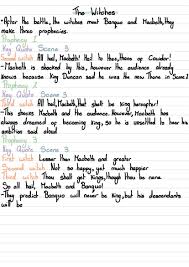 The Witches
•After the battle, the witches meet Banquo and Macbeth, they
make three prophecies.
Prophecy 1
Key Quote Scene 3
Second witch All hail, Macbeth! Hail to thee, thane of Cawdor!
•Macbeth is shocked by this, however the audience already
knows because King Duncan said he was the new Thane in Scene 2
Prophecy 2
Key Quote Scene 3
Third witch All hail, Macbeth, that shalt be king hereafter!
•This shocks Macbeth and the audience. However, Macbeth has
always dreamed of becoming King, so he is unsettled to hear his
ambition said aloud
Prophecy 3
Key Quote Scene 3
First witch Lesser than Macbeth and greater
Second witch Not so happy, yet much happier
Third witch Thou shalt get Kings, though thou be none
So all hail, Macbeth and Banquo!
•They predict Banquo will never be king, but his descendants
will be